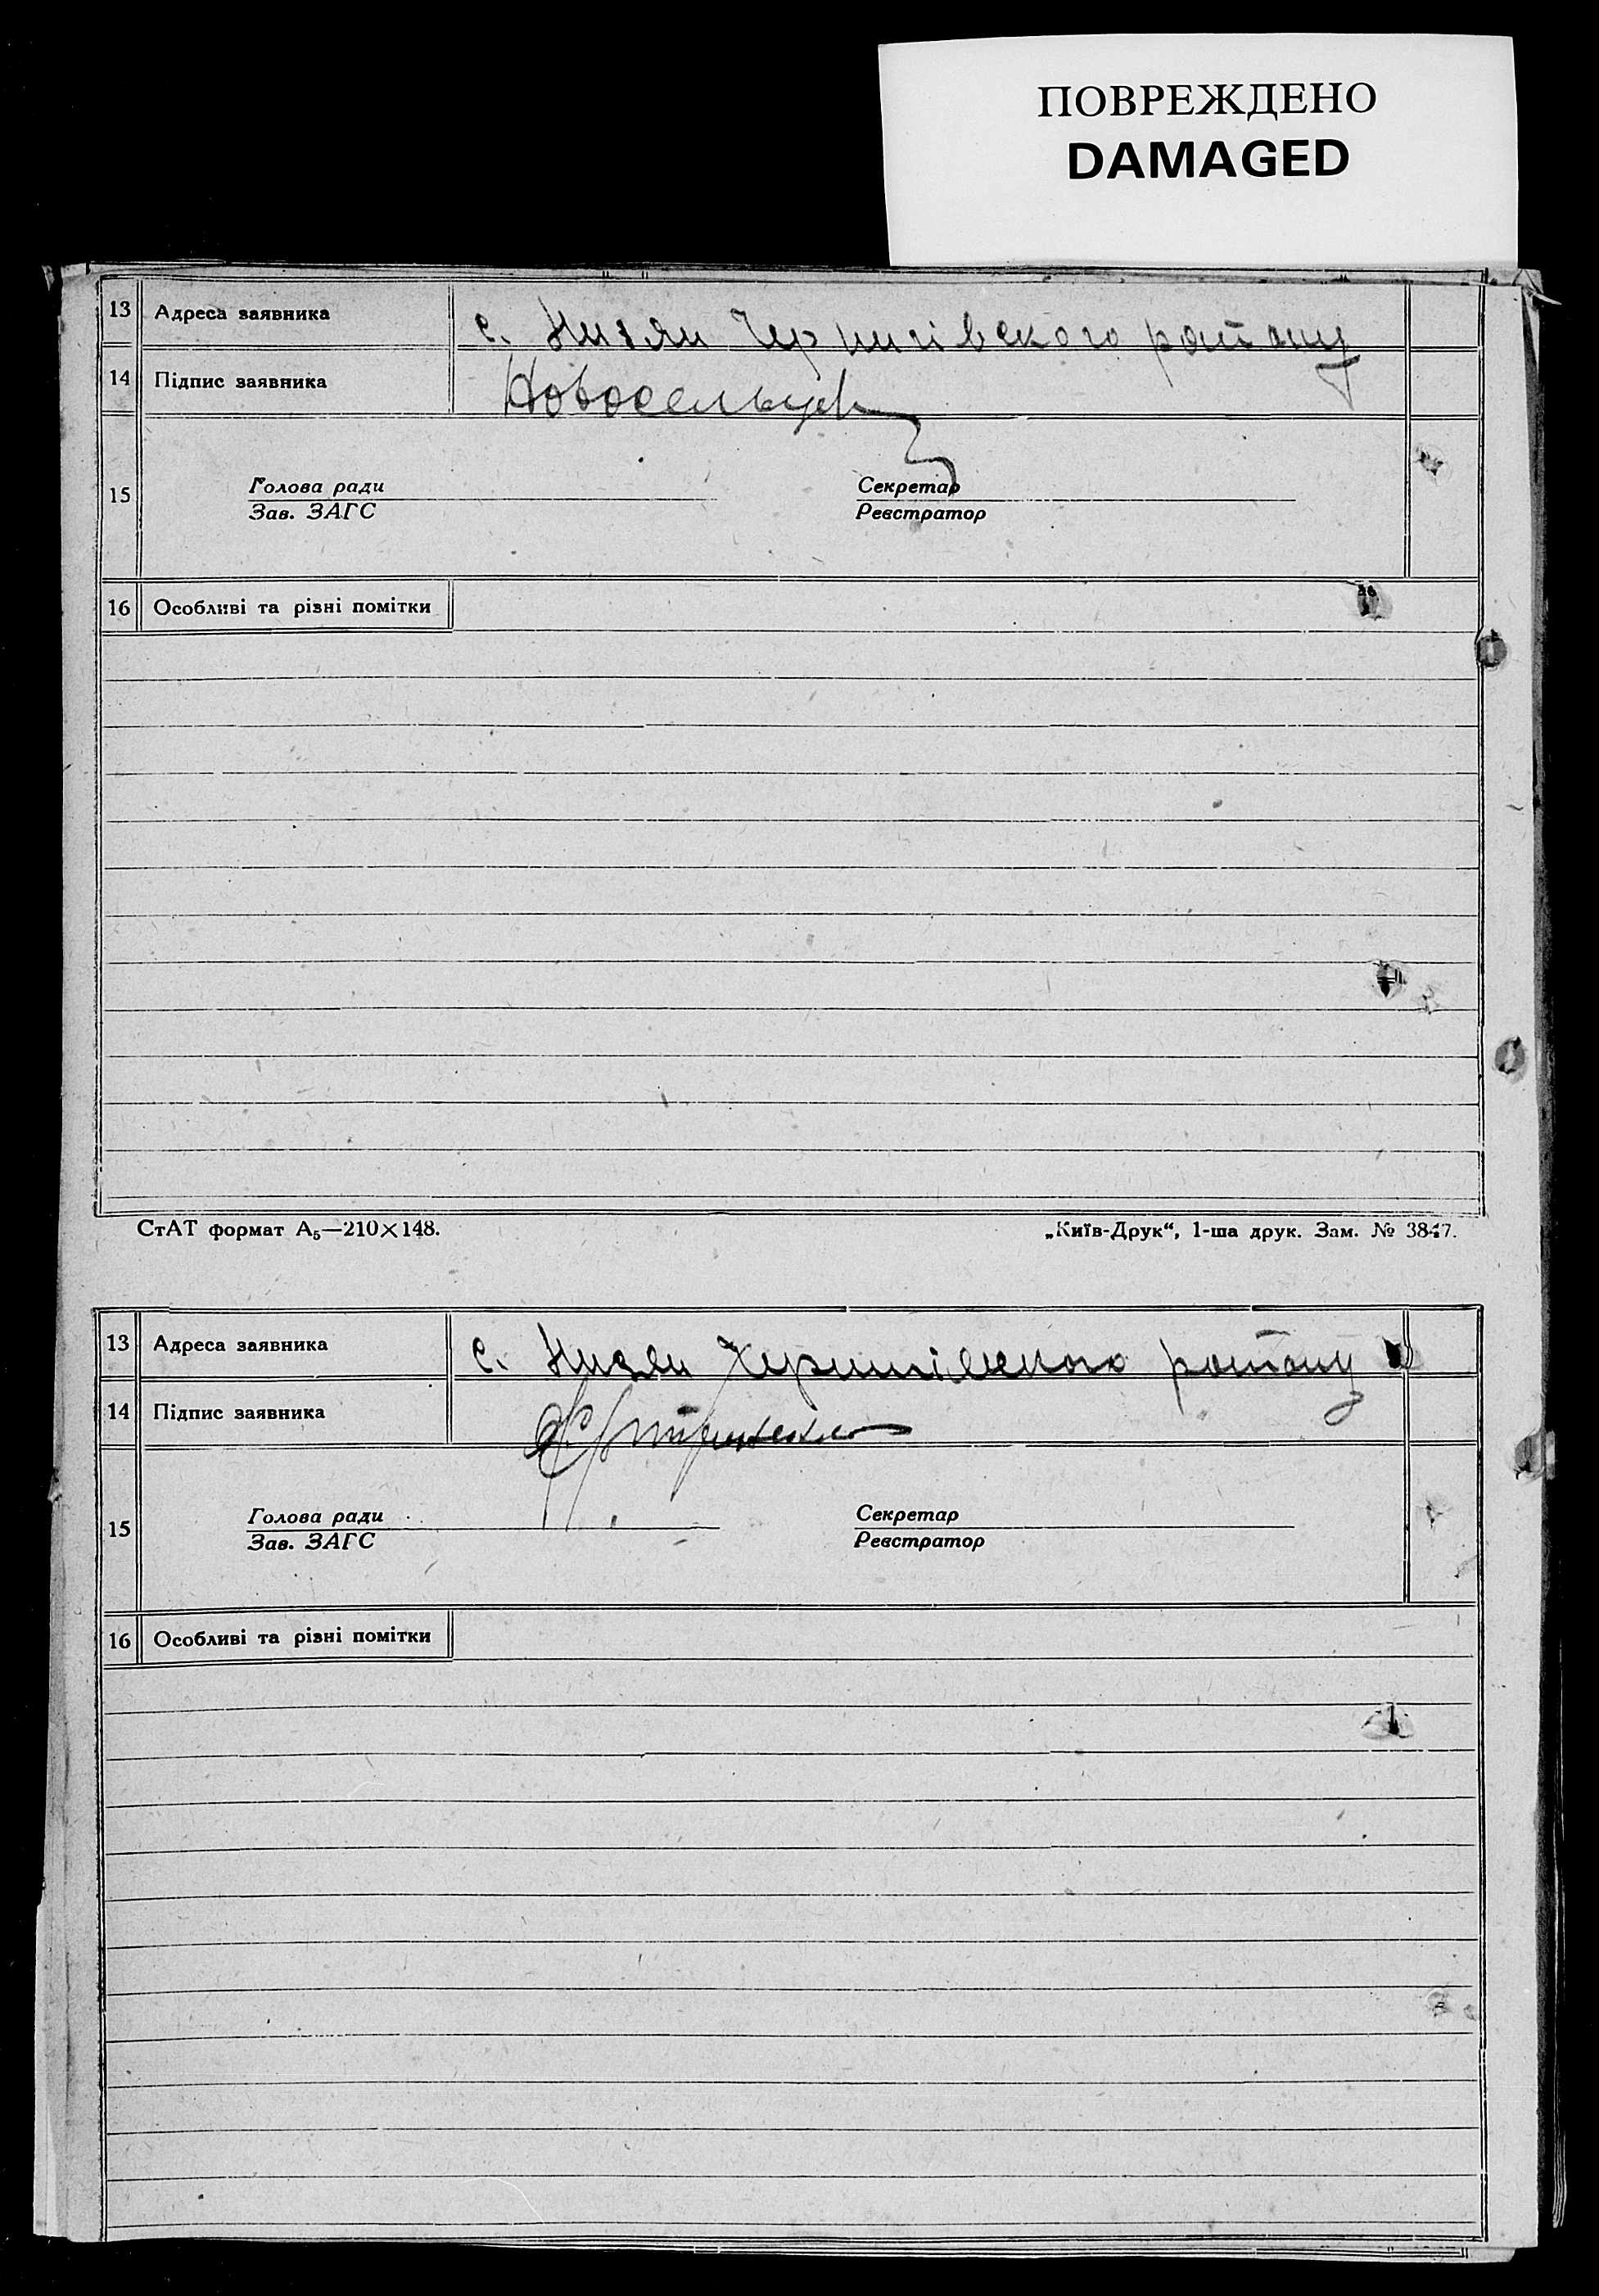 ПОВРЕЖДЕНО
DAMAGED
13 Адреса заявника с. Низян Чернигівського району
14 Підпис заявника
15 Голова ради Секретар
Зав. ЗАГС Реєстратор
16 Особливі та різні помітки
СтАТ формат А₅—210×148. „Київ-Друк“, 1-ша друк. Зам. № 3847.
13 Адреса заявника с. Низян Чернигівського району
14 Підпис заявника
15 Голова ради Секретар
Зав. ЗАГС Реєстратор
16 Особливі та різні помітки